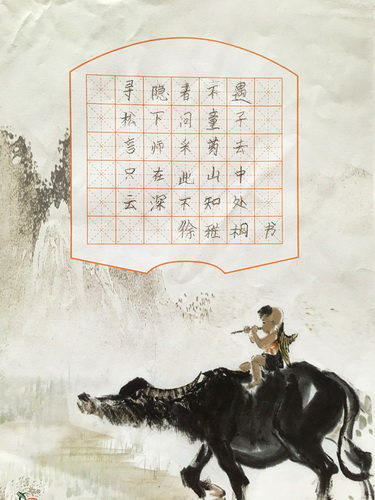 寻隐者不遇
松下问童子
言师采药去
只在此山中
云深不知处
徐雅桐书